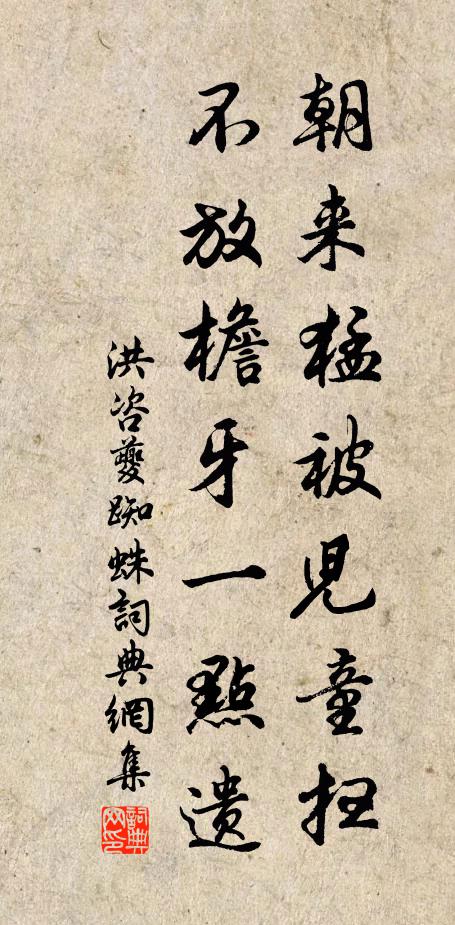 朝来猛被児童扫
不放檐牙一點遗
洪咨夔踟蛛詞典網集
詞典網印